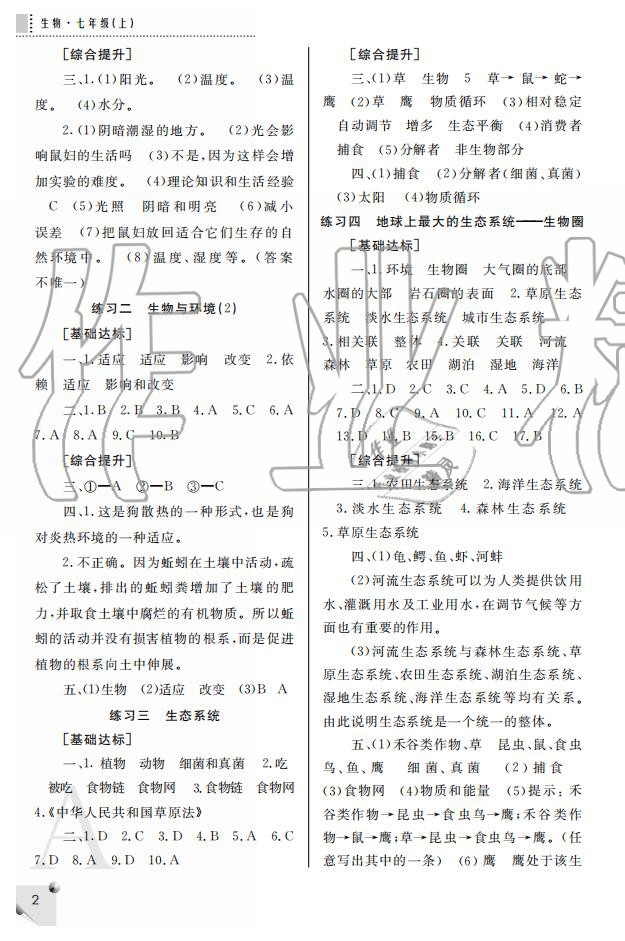 生物·七年级(上)
[综合提升]
三、1.(1)阳光。 (2)温度。 (3)温
度。 (4)水分。
2.(1)阴暗潮湿的地方。 (2)光会影
响鼠妇的生活吗 (3)不是,因为这样会增
加实验的难度。 (4)理论知识和生活经验
C (5)光照 阴暗和明亮 (6)减小
误差 (7)把鼠妇放回适合它们生存的自
然环境中。 (8)温度、湿度等。(答案
不唯一)
练习二 生物与环境(2)
[基础达标]
一、1.适应 适应 影响 改变 2.依
赖 适应 影响和改变
二、1.B 2.B 3.B 4.A 5.C 6.A
7.A 8.A 9.C 10.B
[综合提升]
三、①—A ②—B ③—C
四、1.这是狗散热的一种形式,也是狗
对炎热环境的一种适应。
2.不正确。因为蚯蚓在土壤中活动,疏
松了土壤,排出的蚯蚓粪增加了土壤的肥
力,并取食土壤中腐烂的有机物质。所以蚯
蚓的活动并没有损害植物的根系,而是促进
植物的根系向土中伸展。
五、(1)生物 (2)适应 改变 (3)B A
练习三 生态系统
[基础达标]
一、1.植物 动物 细菌和真菌 2.吃
被吃 食物链 食物网 3.食物链 食物网
4.《中华人民共和国草原法》
二、1.D 2.C 3.D 4.B 5.A 6.C
7.D 8.A 9.D 10.A
[综合提升]
三、(1)草 生物 5 草→鼠→蛇→
鹰 (2)草 鹰 物质循环 (3)相对稳定
自动调节 增多 生态平衡 (4)消费者
捕食 (5)分解者 非生物部分
四、(1)捕食 (2)分解者(细菌、真菌)
(3)太阳 (4)物质循环
练习四 地球上最大的生态系统——生物圈
[基础达标]
一、1.环境 生物圈 大气圈的底部
水圈的大部 岩石圈的表面 2.草原生态
系统 淡水生态系统 城市生态系统
3.相关联 整体 4.关联 关联 河流
森林 草原 农田 湖泊 湿地 海洋
二、1.D 2.C 3.C 4.A 5.D 6.B
7.D 8.C 9.A 10.C 11.A 12.A
13.D 14.B 15.B 16.C 17.B
[综合提升]
三、1.农田生态系统 2.海洋生态系统
3.淡水生态系统 4.森林生态系统
5.草原生态系统
四、(1)龟、鳄、鱼、虾、河蚌
(2)河流生态系统可以为人类提供饮用
水、灌溉用水及工业用水,在调节气候等方
面也有重要的作用。
(3)河流生态系统与森林生态系统、草
原生态系统、农田生态系统、湖泊生态系统、
湿地生态系统、海洋生态系统等均有关系。
由此说明生态系统是一个统一的整体。
五、(1)禾谷类作物、草 昆虫、鼠、食虫
鸟、鱼、鹰 细菌、真菌 (2)捕食
(3)食物网 (4)物质和能量 (5)提示:禾
谷类作物→昆虫→食虫鸟→鹰;禾谷类作
物→鼠→鹰;草→昆虫→食虫鸟→鹰。(任
意写出其中的一条) (6)鹰 鹰处于该生
2
作业精
A